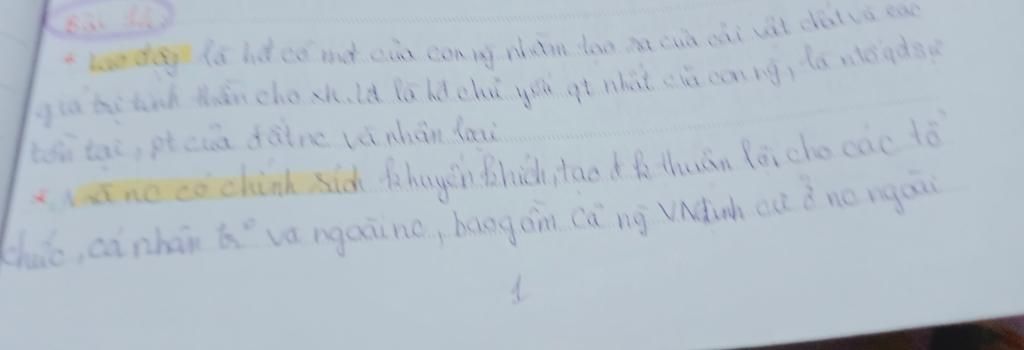 Bài 14:
* Lao động là hđ có mđ của con ng nhằm tạo ra của cải vật chất và các
giá trị tinh thần cho xh. Lđ là hđ chủ yếu qt nhất của con ng, là ntố qđ sự
tồn tại, pt của đất nc và nhân loại
* nc có chính sách khuyến khích, tạo đk thuận lợi cho các tổ
chức, cá nhân và ngoài nc, bao gồm cả ng VN định cư ở nc ngoài
1